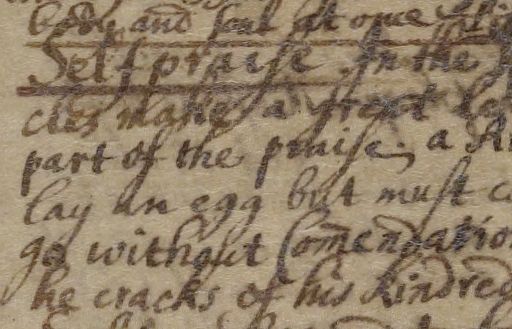 body and soul at one
Self praise In the
cles make a great
part of the praise. a
lay an egg but must
go without Comendation
he cracks of his kindred